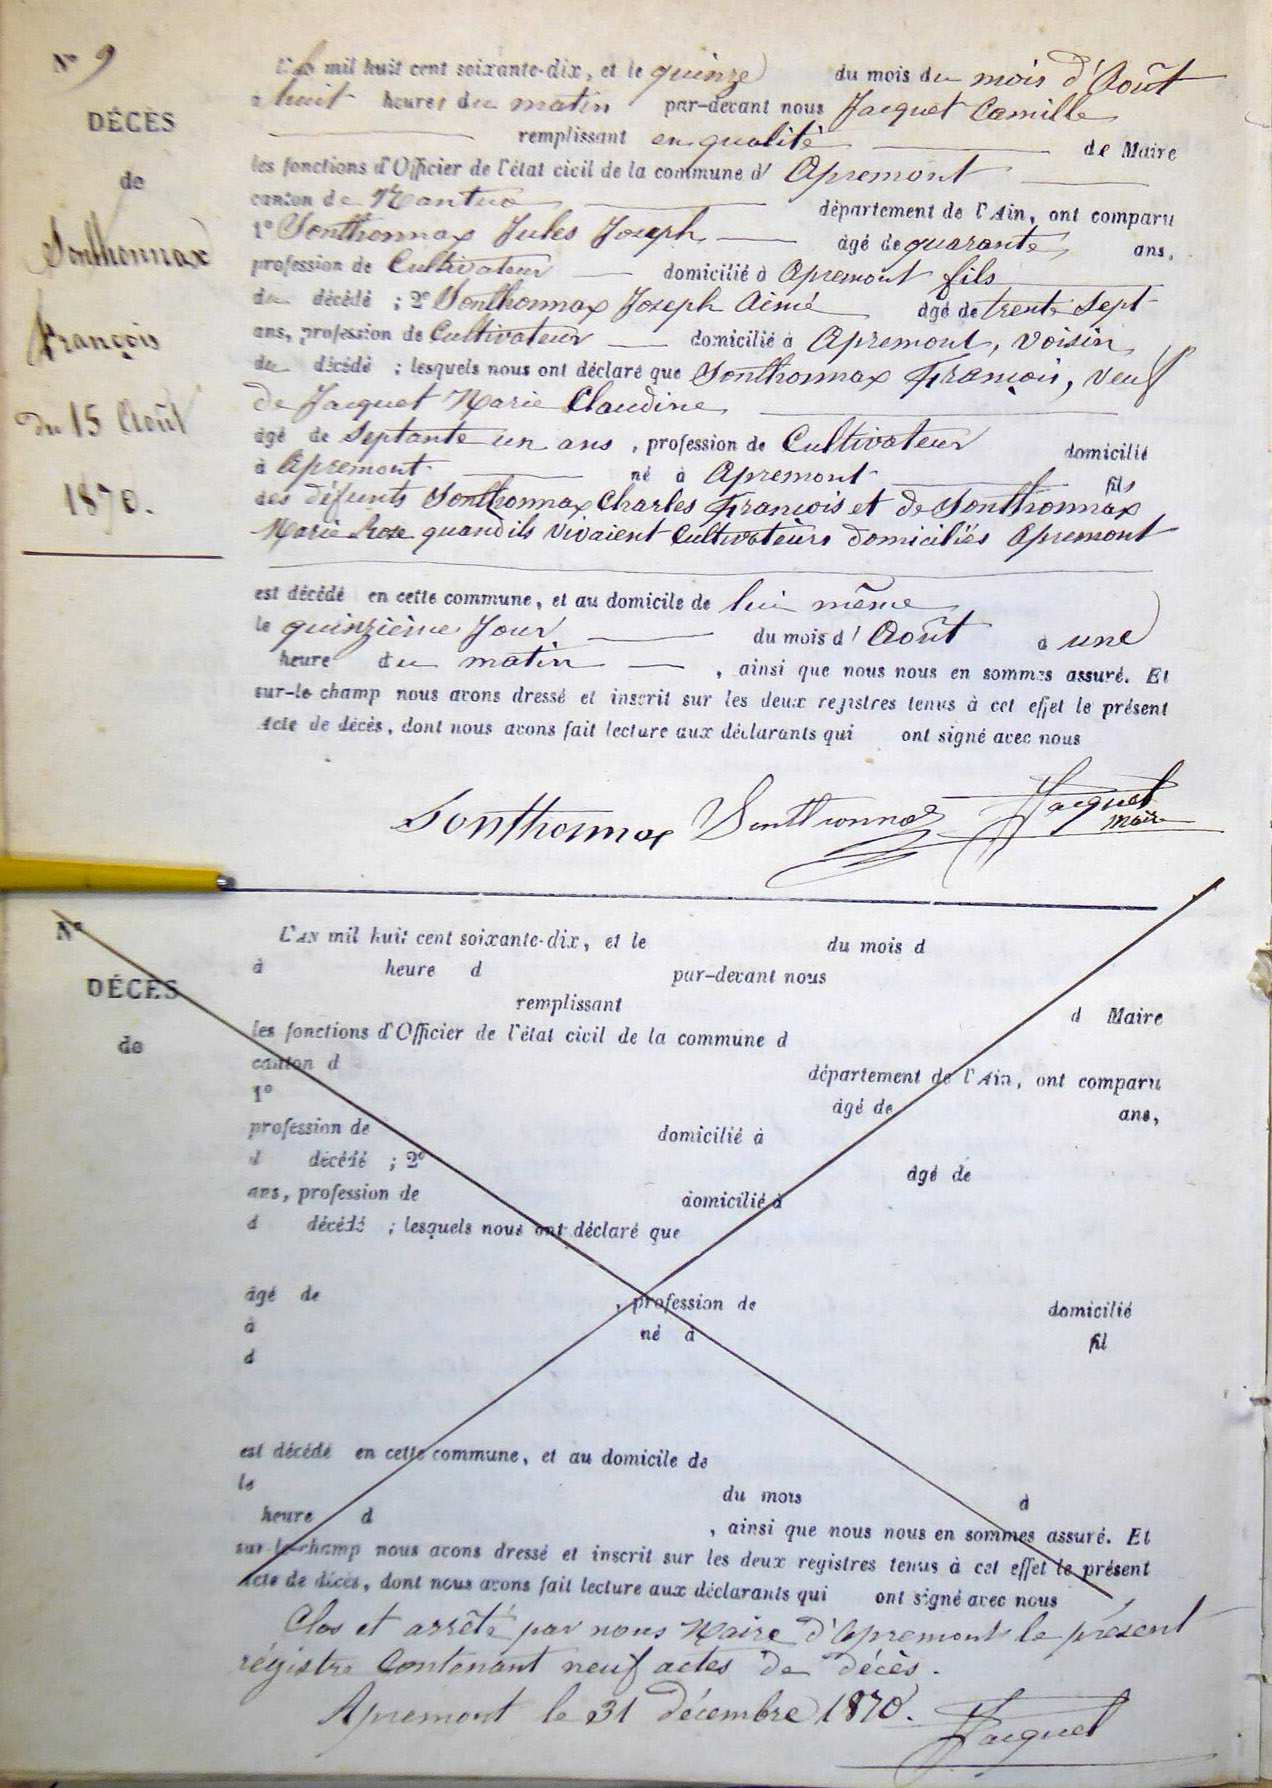 N° 9
DÉCÈS
de
Sonthonnax
François
du 15 Août
1870.
L'AN mil huit cent soixante-dix, et le quinze du mois du mois d'Août
à huit heures du matin par-devant nous Jacquet Camille
remplissant en qualité de Maire
les fonctions d'Officier de l'état civil de la commune d'Apremont
canton de Nantua département de l'Ain, ont comparu
1° Sonthonnax Jules Joseph âgé de quarante ans,
profession de Cultivateur domicilié à Apremont fils
du décédé ; 2° Sonthonnax Joseph Aimé âgé de trente sept
ans, profession de Cultivateur domicilié à Apremont, voisin
du décédé ; lesquels nous ont déclaré que Sonthonnax François, veuf
de Jacquet Marie Claudine
âgé de septante un ans , profession de Cultivateur domicilié
à Apremont né à Apremont fils
des défunts Sonthonnax Charles François et de Sonthonnax
Marie Rose quand ils vivaient Cultivateurs domiciliés Apremont
est décédé en cette commune, et au domicile de lui même
le quinzième Jour du mois d'Août à une
heure du matin , ainsi que nous nous en sommes assuré. Et
sur-le-champ nous avons dressé et inscrit sur les deux registres tenus à cet effet le présent
Acte de décès, dont nous avons fait lecture aux déclarants qui ont signé avec nous
Sonthonnax Sonthonnax Jacquet
maire
N°
DÉCÈS
de
L'AN mil huit cent soixante-dix, et le du mois d
à heure d par-devant nous
remplissant d Maire
les fonctions d'Officier de l'état civil de la commune d
canton d département de l'Ain, ont comparu
1° âgé de ans,
profession de domicilié à
d décédé ; 2° âgé de
ans, profession de domicilié à
d décédé ; lesquels nous ont déclaré que
âgé de , profession de domicilié
à né à fil
d
est décédé en cette commune, et au domicile de
le du mois d
heure d , ainsi que nous nous en sommes assuré. Et
sur-le-champ nous avons dressé et inscrit sur les deux registres tenus à cet effet le présent
Acte de décès, dont nous avons fait lecture aux déclarants qui ont signé avec nous
Clos et arrêté par nous Maire d'Apremont le présent
régistre Contenant neuf actes de décès.
Apremont le 31 décembre 1870.
Jacquet